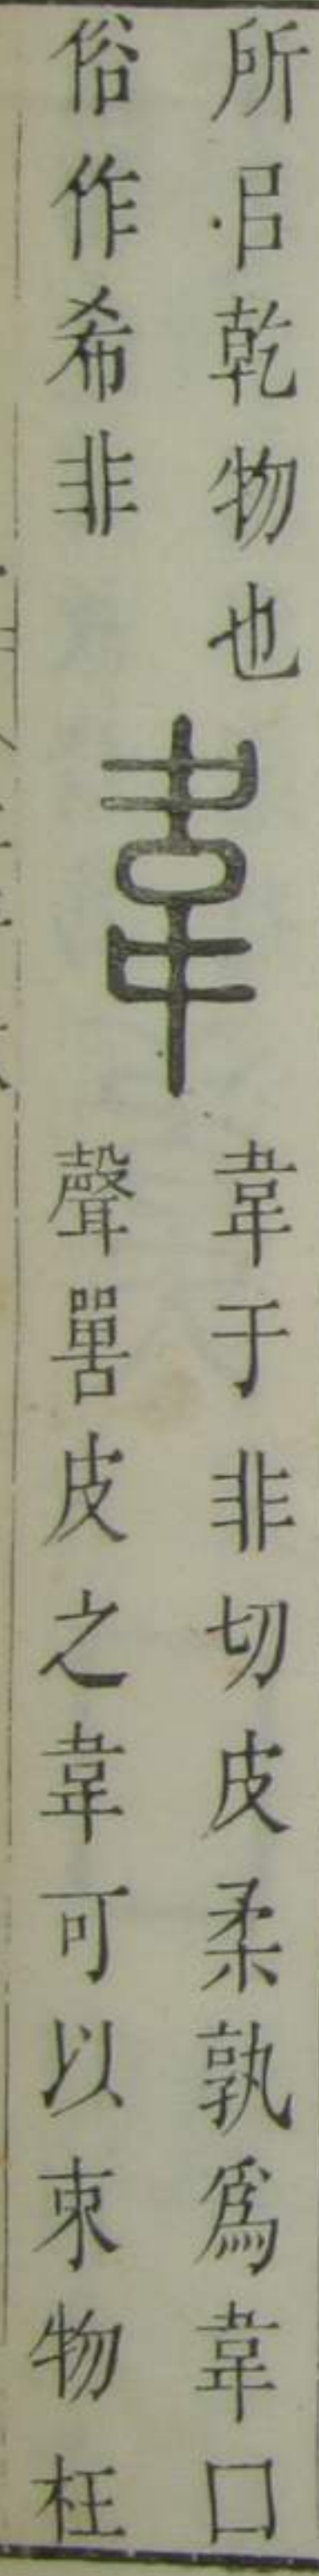 所㠯乾物也
俗作希非
韋
韋于非切皮柔孰爲韋囗
聲嘼皮之韋可以束物枉